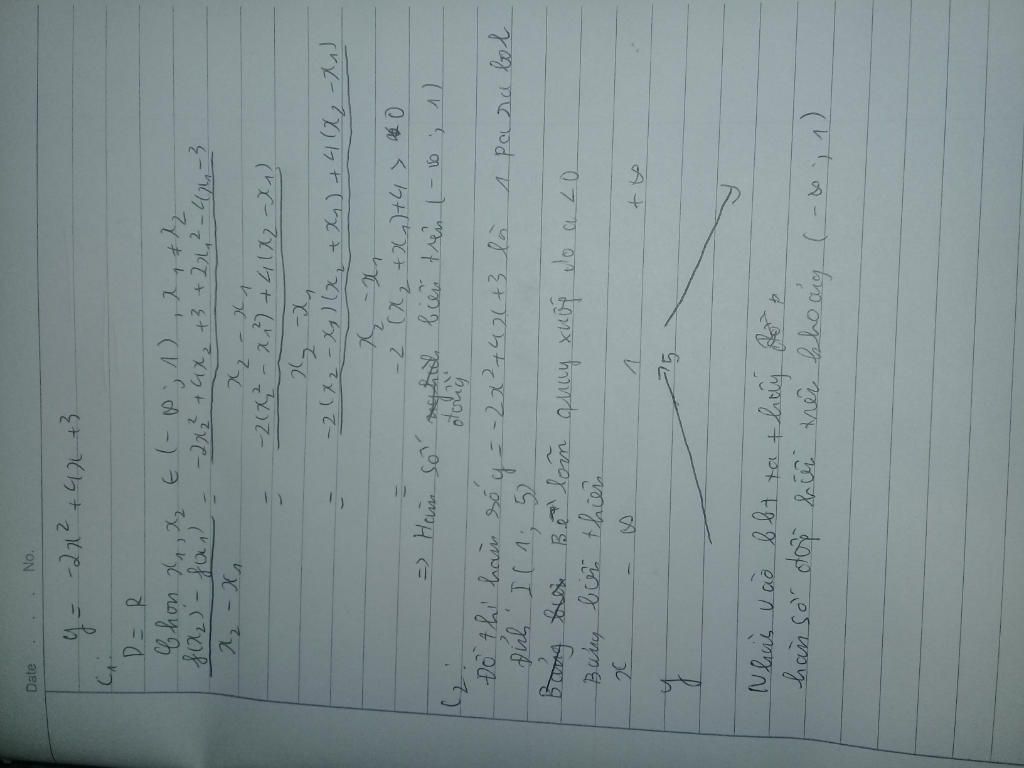 Date . . . No.
y = -2x² + 4x + 3
C₁:
D = R
Chọn x₁, x₂ ∈ (-∞; 1), x₁ ≠ x₂
f(x₂) - f(x₁) / x₂ - x₁ = -2x₂² + 4x₂ + 3 + 2x₁² - 4x₁ - 3 / x₂ - x₁
= -2(x₂² - x₁²) + 4(x₂ - x₁) / x₂ - x₁
= -2(x₂ - x₁)(x₂ + x₁) + 4(x₂ - x₁) / x₂ - x₁
= -2(x₂ + x₁) + 4 > 0
=> Hàm số đồng biến trên (-∞; 1)
C₂:
Đồ thị hàm số y = -2x² + 4x + 3 là 1 parabol
Đỉnh I(1; 5)
Bề lõm quay xuống do a < 0
Bảng biến thiên
x -∞ 1 +∞
y 5
Nhìn vào bbt ta thấy
hàm số đồng biến trên khoảng (-∞; 1)